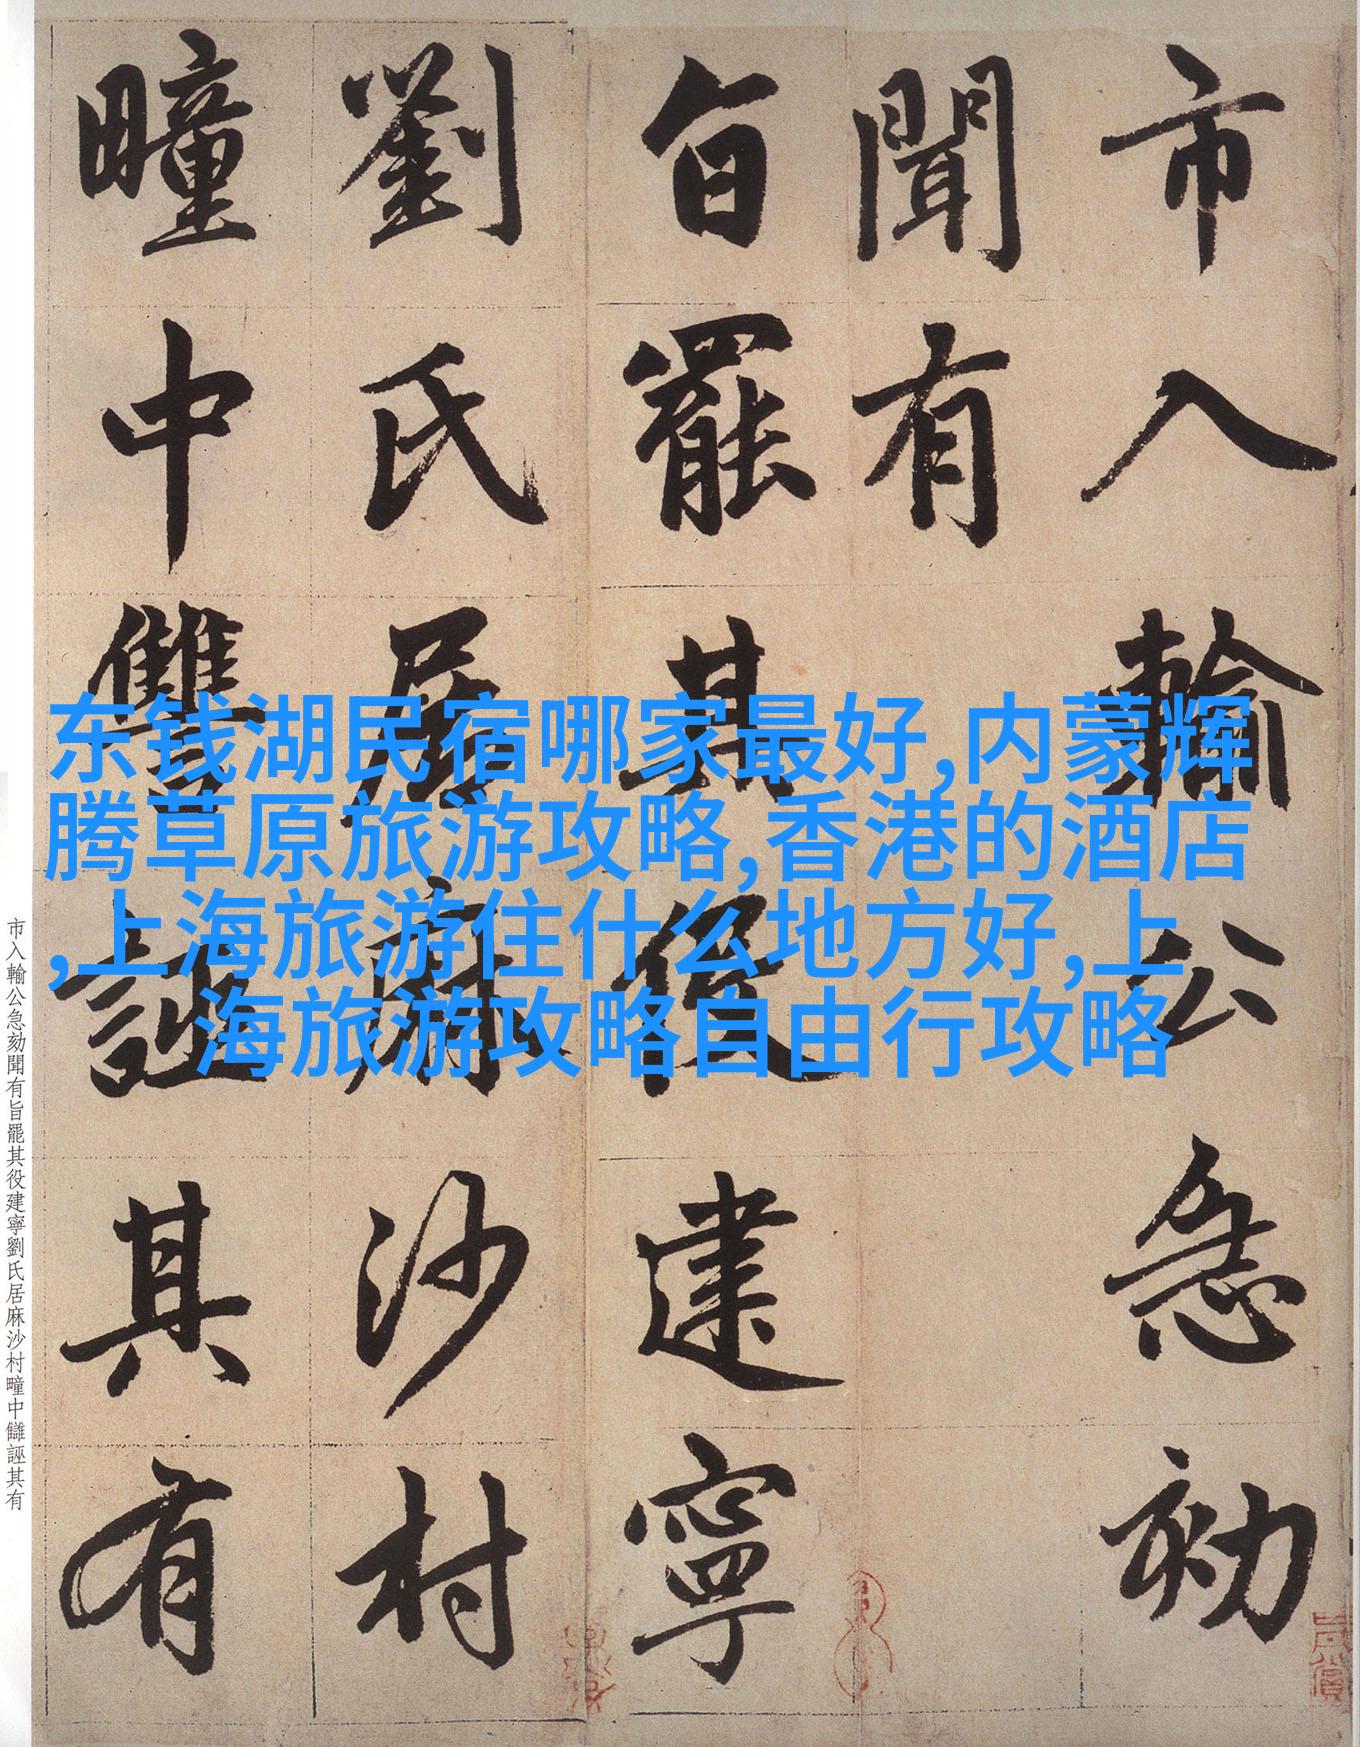 市入輸公急劾
聞有
旨罷其役建寧
劉氏居麻沙村
疃中讐誣其有
东钱湖民宿哪家最好,内蒙辉
腾草原旅游攻略,香港的酒店
,上海旅游住什么地方好,上
海旅游攻略自由行攻略
市入輸公急劾聞有旨罷其役建寧劉氏居麻沙村疃中讎誣其有